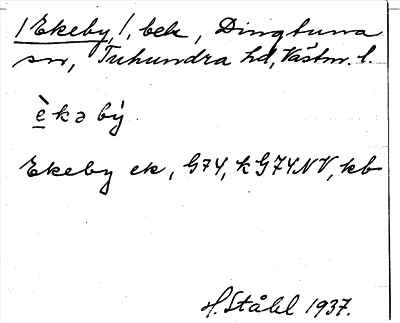 /Ekeby,/, bek, Dingtuna
sn, Tuhundra hd, Västm. l.
è̱kəbý
Ekeby ek, G74, kG74NV, kb
H. Ståhl 1937.